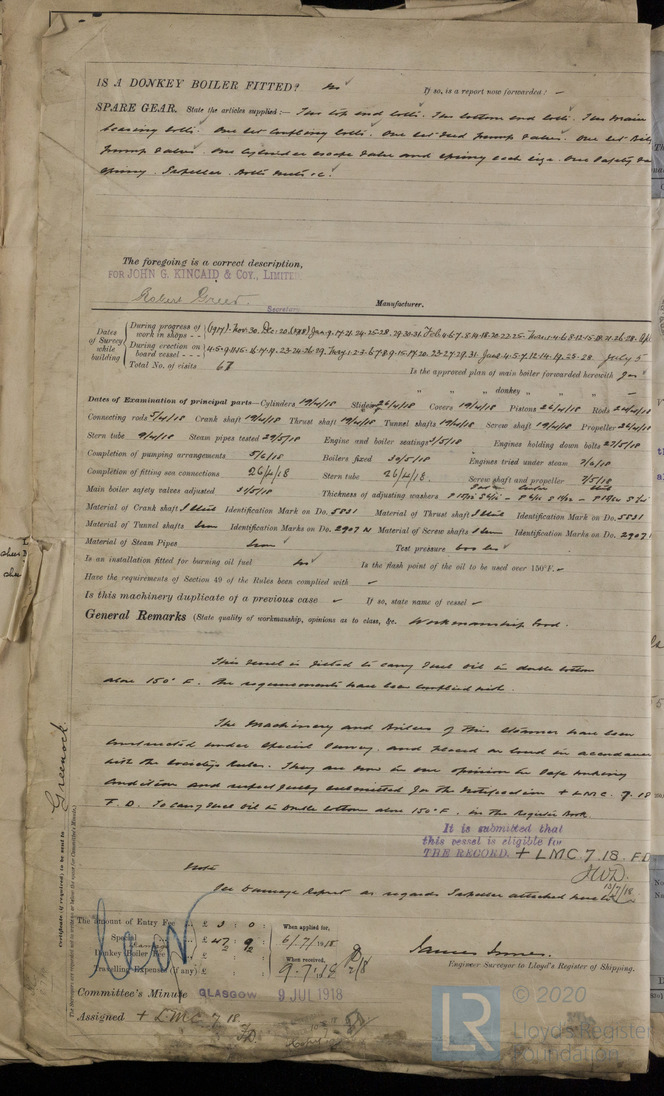 IS A DONKEY BOILER FITTED? No If so, is a report now forwarded? –
SPARE GEAR. State the articles supplied:— Two top end bolts. Two bottom end bolts. Two main
bearing bolts. One set Coupling bolts. One set Feed Pump Valves. One set Bilge
Pump Valves. One Cylinder escape valve and spring each size. One Safety
spring. Propeller. Bolts nuts &c.
The foregoing is a correct description,
FOR JOHN G. KINCAID & COY., LIMITED
Robert Green
Secretary Manufacturer.
Dates of Survey while building
During progress of work in shops - - (1917). Nov. 30. Dec. 20. (1918) Jan. 9. 17. 21. 24. 25. 28. 29. 30. 31. Feb. 4. 6. 7. 8. 14. 18. 20. 22. 25.
During erection on board vessel - - - 4. 5. 9. 11. 15. 16. 17. 19. 23. 24. 26. 29. May. 1. 2. 3. 6. 7. 8. 9. 15. 17. 20. 23. 27. 29. 31. June 4. 5. 7. 12. 14. 19. 25. 28. July 5
Total No. of visits 67
Is the approved plan of main boiler forwarded herewith Yes
" " " donkey " " "
Dates of Examination of principal parts—Cylinders 19/4/18 Slides 26/4/18 Covers 19/4/18 Pistons 26/4/18 Rods
Connecting rods 5/4/18 Crank shaft 19/4/18 Thrust shaft 19/4/18 Tunnel shafts 19/4/18 Screw shaft 19/4/18 Propeller 26/4/18
Stern tube 9/4/18 Steam pipes tested 29/5/18 Engine and boiler seatings Engines holding down bolts 27/5/18
Completion of pumping arrangements 5/6/18 Boilers fixed 30/5/18 Engines tried under steam 7/6/18
Completion of fitting sea connections 26/4/18 Stern tube 26/4/18. Screw shaft and propeller 7/5/18
Main boiler safety valves adjusted 31/5/18 Thickness of adjusting washers
Material of Crank shaft I Steel Identification Mark on Do. 5831 Material of Thrust shaft I Steel Identification Mark on Do. 5831
Material of Tunnel shafts Iron Identification Marks on Do. 2907 N Material of Screw shafts Iron Identification Marks on Do. 2907
Material of Steam Pipes Iron Test pressure 600 lbs
Is an installation fitted for burning oil fuel No Is the flash point of the oil to be used over 150°F. –
Have the requirements of Section 49 of the Rules been complied with
Is this machinery duplicate of a previous case If so, state name of vessel
General Remarks (State quality of workmanship, opinions as to class, &c. Workmanship Good.
This vessel is fitted to carry Fuel Oil in double bottom
above 150° F. The requirements have been complied with.
The Machinery and Boilers of this Steamer have been
constructed under Special Survey. and placed on board in accordance
with the Society's Rules. They are now in our opinion in safe working
condition and respectfully submitted for the notification + LMC. 7. 18
F. D. To carry Fuel oil in Double bottom above 150° F. in the Register Book.
It is submitted that
this vessel is eligible for
THE RECORD. + LMC. 7. 18. F.D
JWD.
10/7/18
Note
See Damage Report as regards Propeller attached hereto
Certificate (if required) to be sent to Greenock.
The amount of Entry Fee £ 3 : 0 : When applied for,
Special £ 47 : 9 6/7/1918
Donkey Boiler Fee £ : : When received,
Travelling Expenses (if any) £ : : 9.7.18
James Innes.
Engineer Surveyor to Lloyd's Register of Shipping.
Committee's Minute GLASGOW 9 JUL 1918
Assigned + LMC 7 18.
F.D.
LR © 2020
Lloyd's Register
Foundation